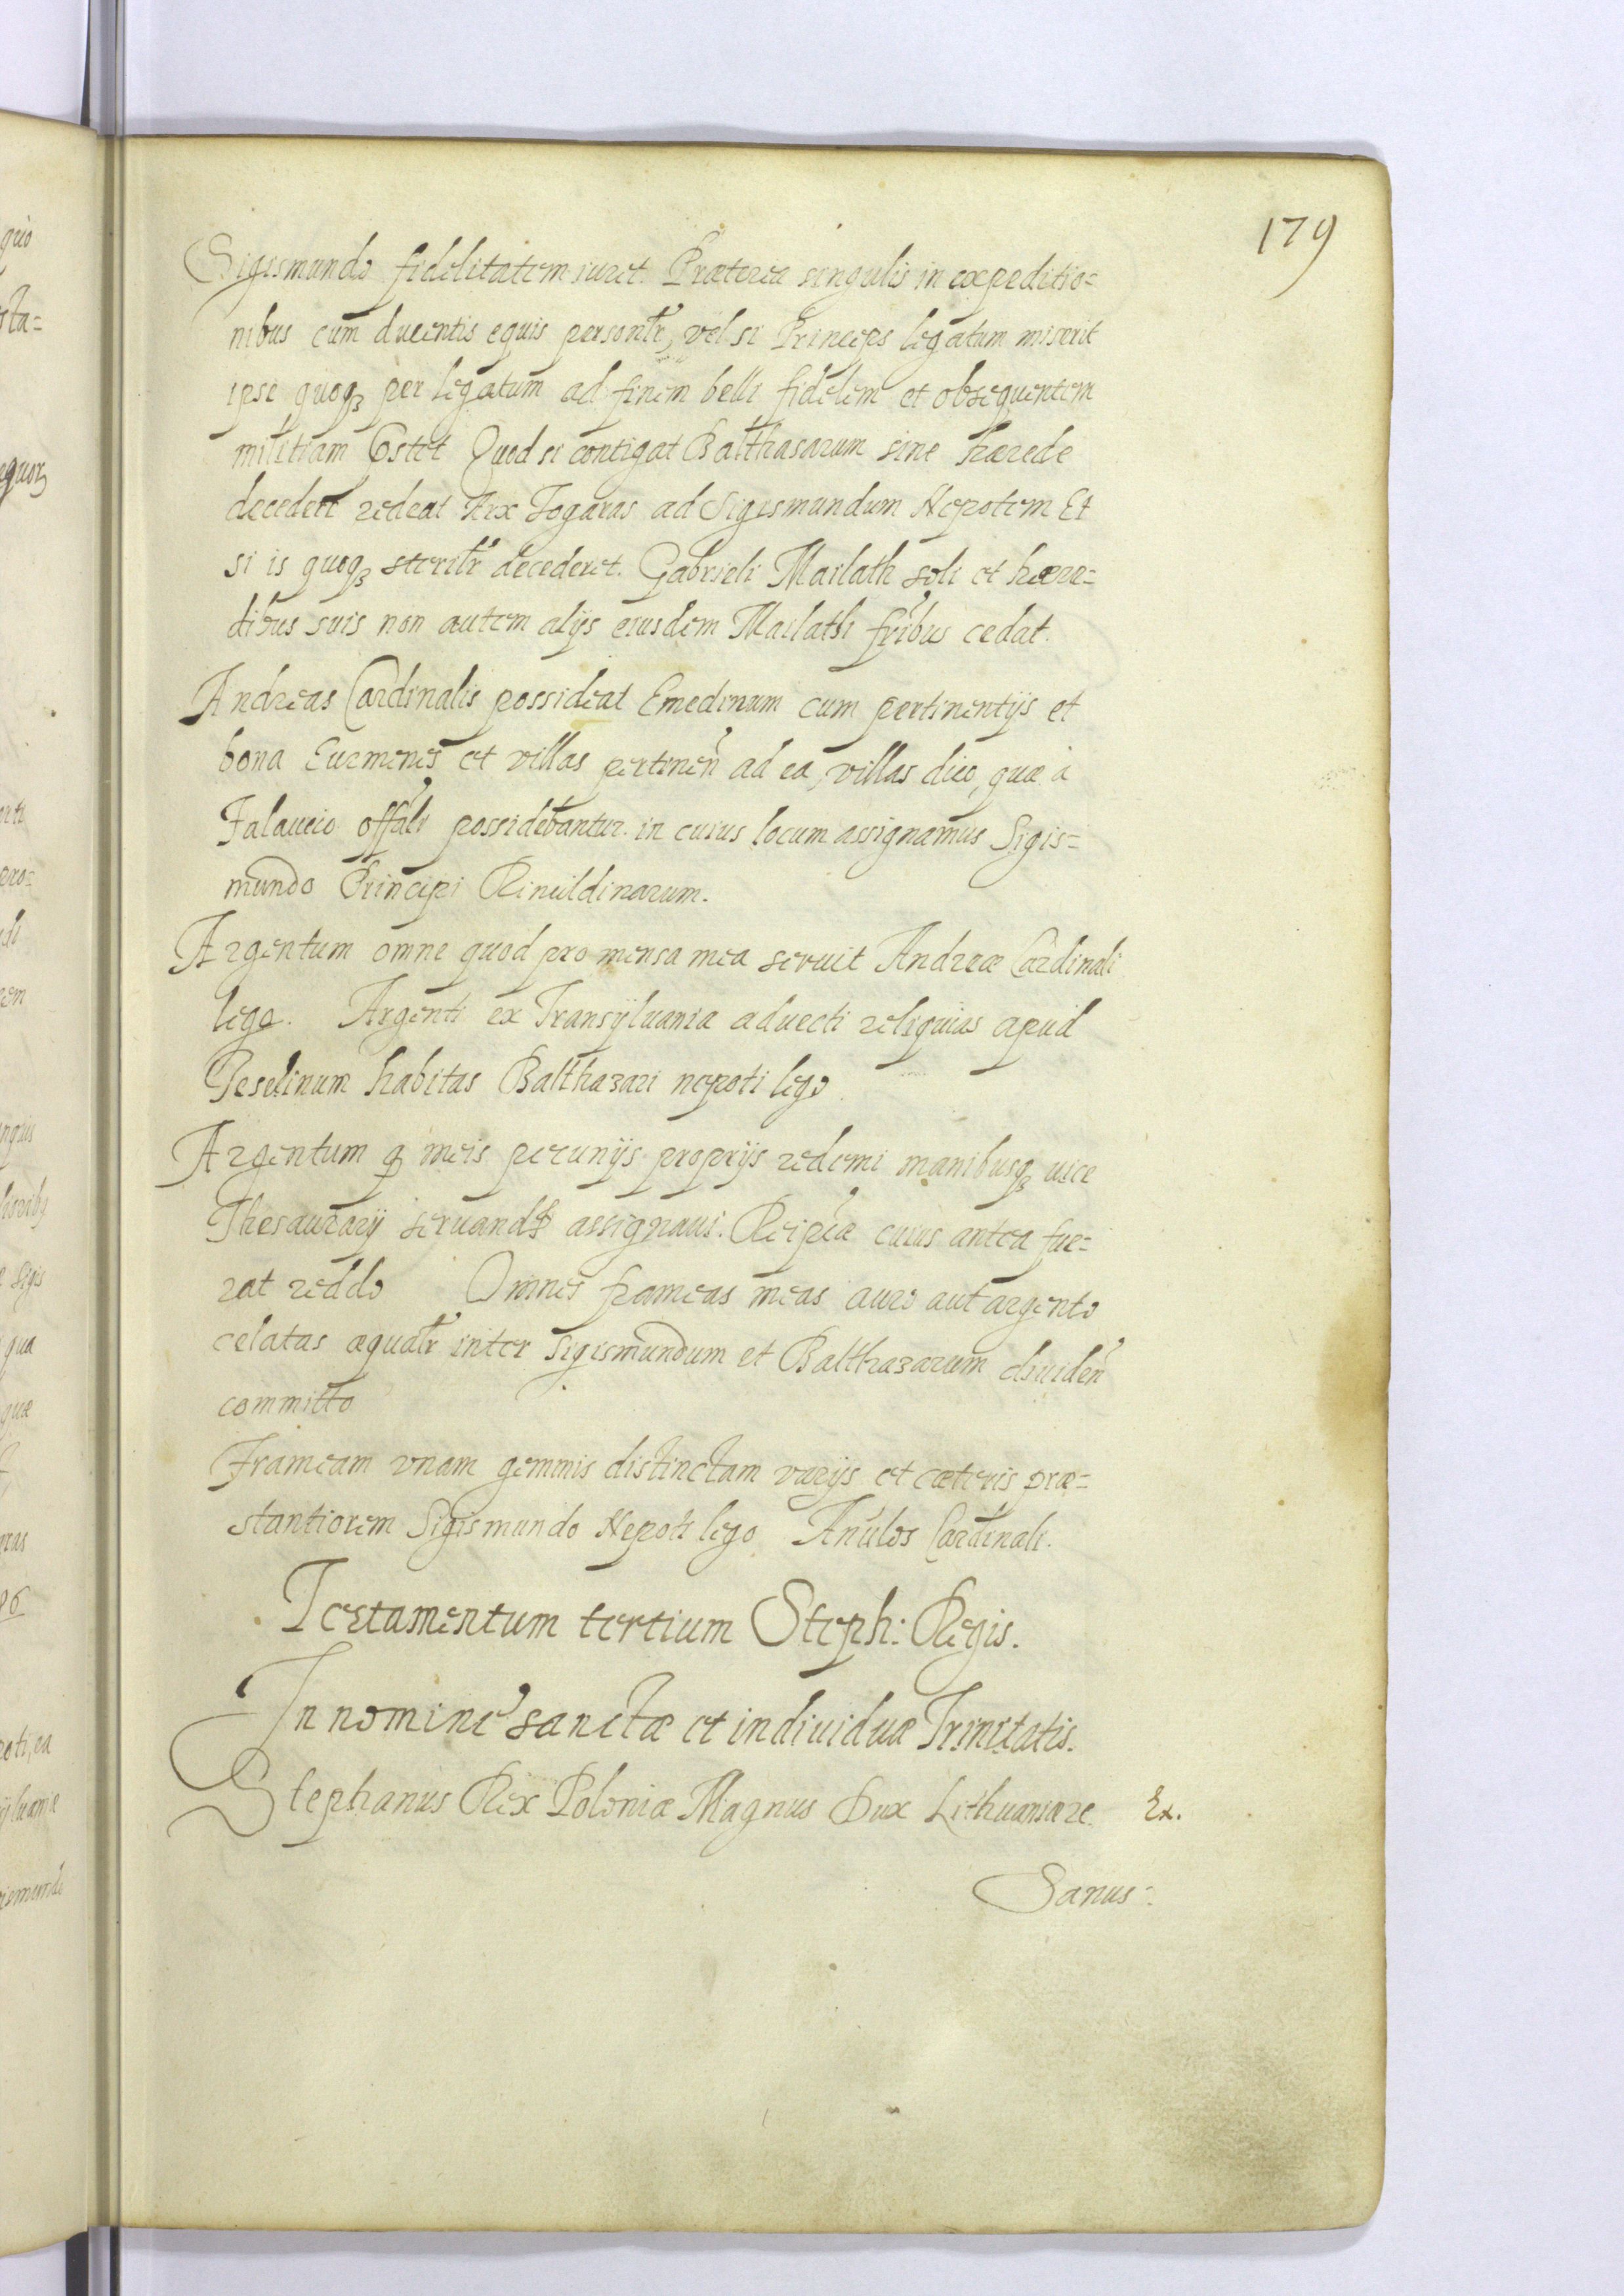 179
Sigismundo fidelitatem iuret. Præterea singulis in expeditio=
nibus cum ducentis equis personlr, vel si Princeps legatum miserit
ipse quoqꝫ per legatum ad finem belli fidelem et obsequentem
militiam Ꝓstet Quod si contigat Balthasarum sine hærede
decedere redeat Arx Fogaras ad Sigismundum Nepotem Et
si is quoqꝫ sterilr decederet. Gabrieli Mailath soli et hære=
dibus suis non autem alijs eiusdem Mailathi fribus cedat.
Andreas Cardinalis possideat Emedinum cum pertinentijs et
bona Euemenes et villas pertinen ad ea, villas dico, quæ à
Falaucio offali possidebantur. in cuius locum assignamus Sigis=
mundo Principi
Argentum omne quod pro mensa mea seruit Andreæ Cardinali
lego. Argenti ex Transÿluania aduecti reliquias apud
Geselinum habitas Balthazari nepoti lego.
Argentum ꝗ meis pecunijs proprijs redemi manibusqꝫ uice
Thesaurarij assignaui. Reipcæ cuius antea fue=
rat reddo Omnes frameas meas auro aut argento
celatas æqualr inter Sigismundum et Balthazarum diuiden
committo
Frameam vnam gemmis distinctam varijs et cæteris præ=
stantiorem Sigismundo Nepoti lego Anulos Cardinali.
Testamentum tertium Steph: Regis.
In nomine sanctæ et indiuiduæ Trinitatis.
Stephanus Rex Poloniæ Magnus Dux Lithuaniæ etc. Ex.
Sanus=